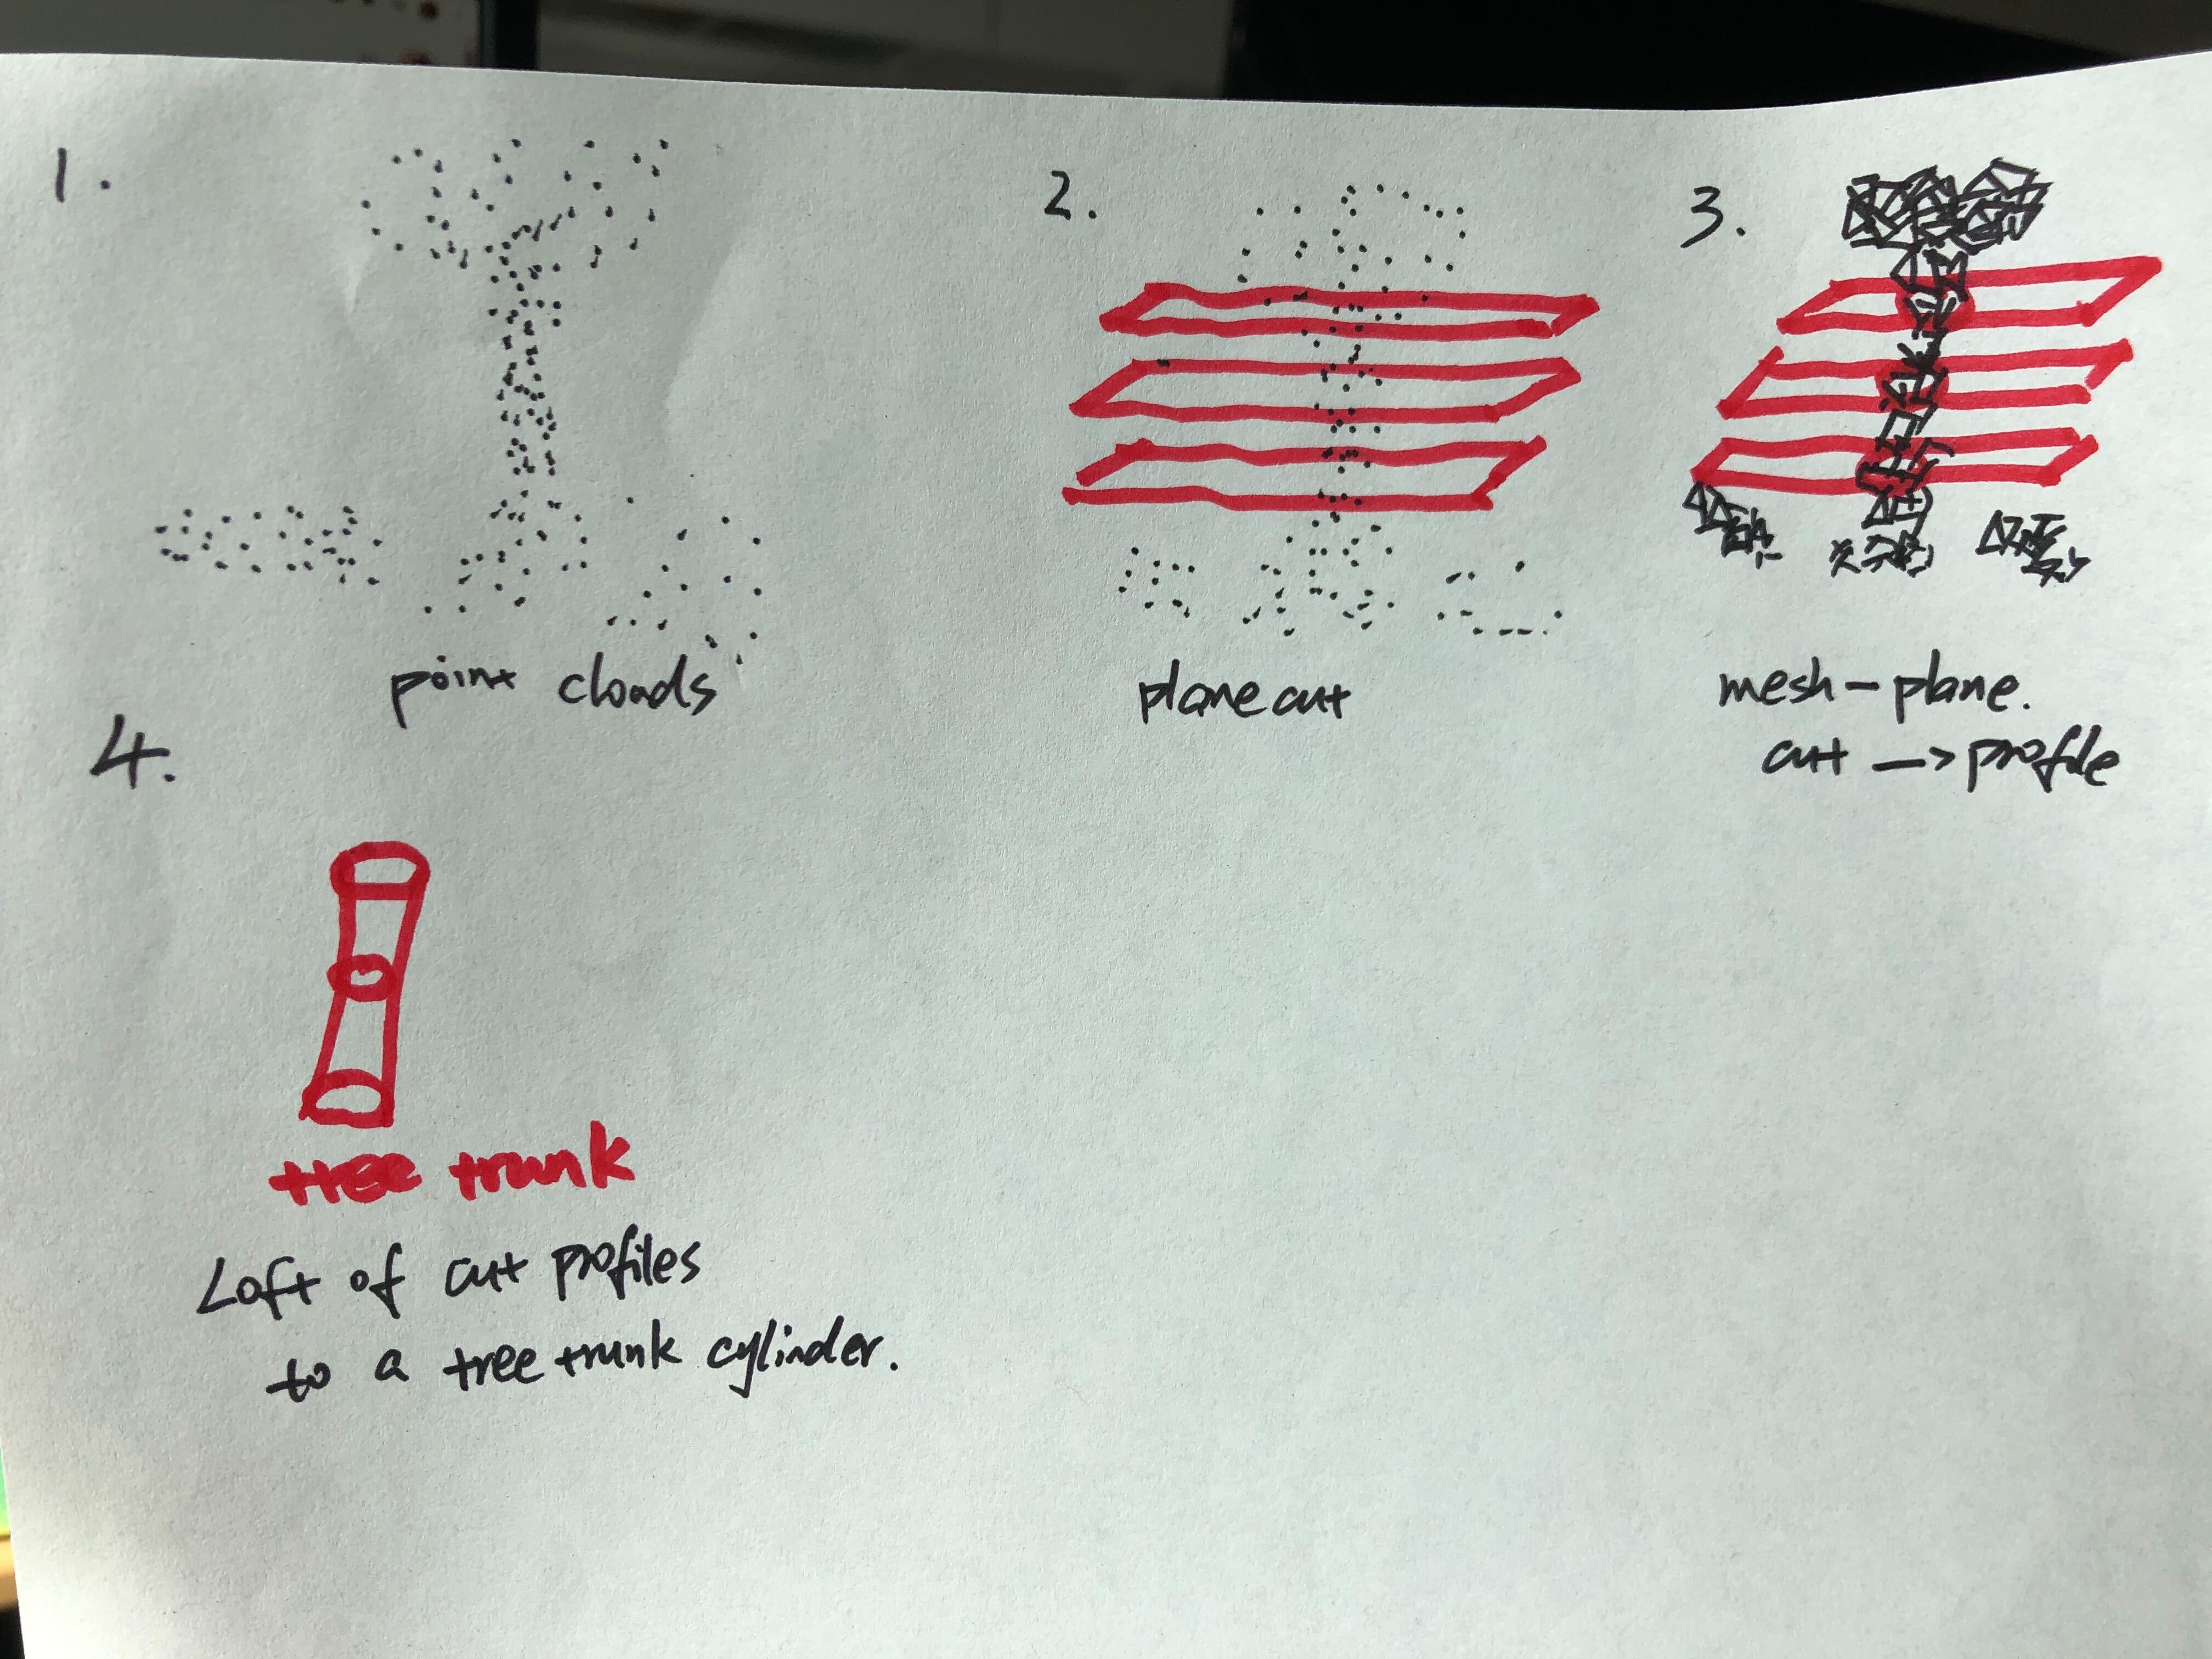 1.
point clouds
2.
plane cut
3.
mesh-plane.
cut -> profile
4.
tree trunk
Loft of cut profiles
to a tree trunk cylinder.